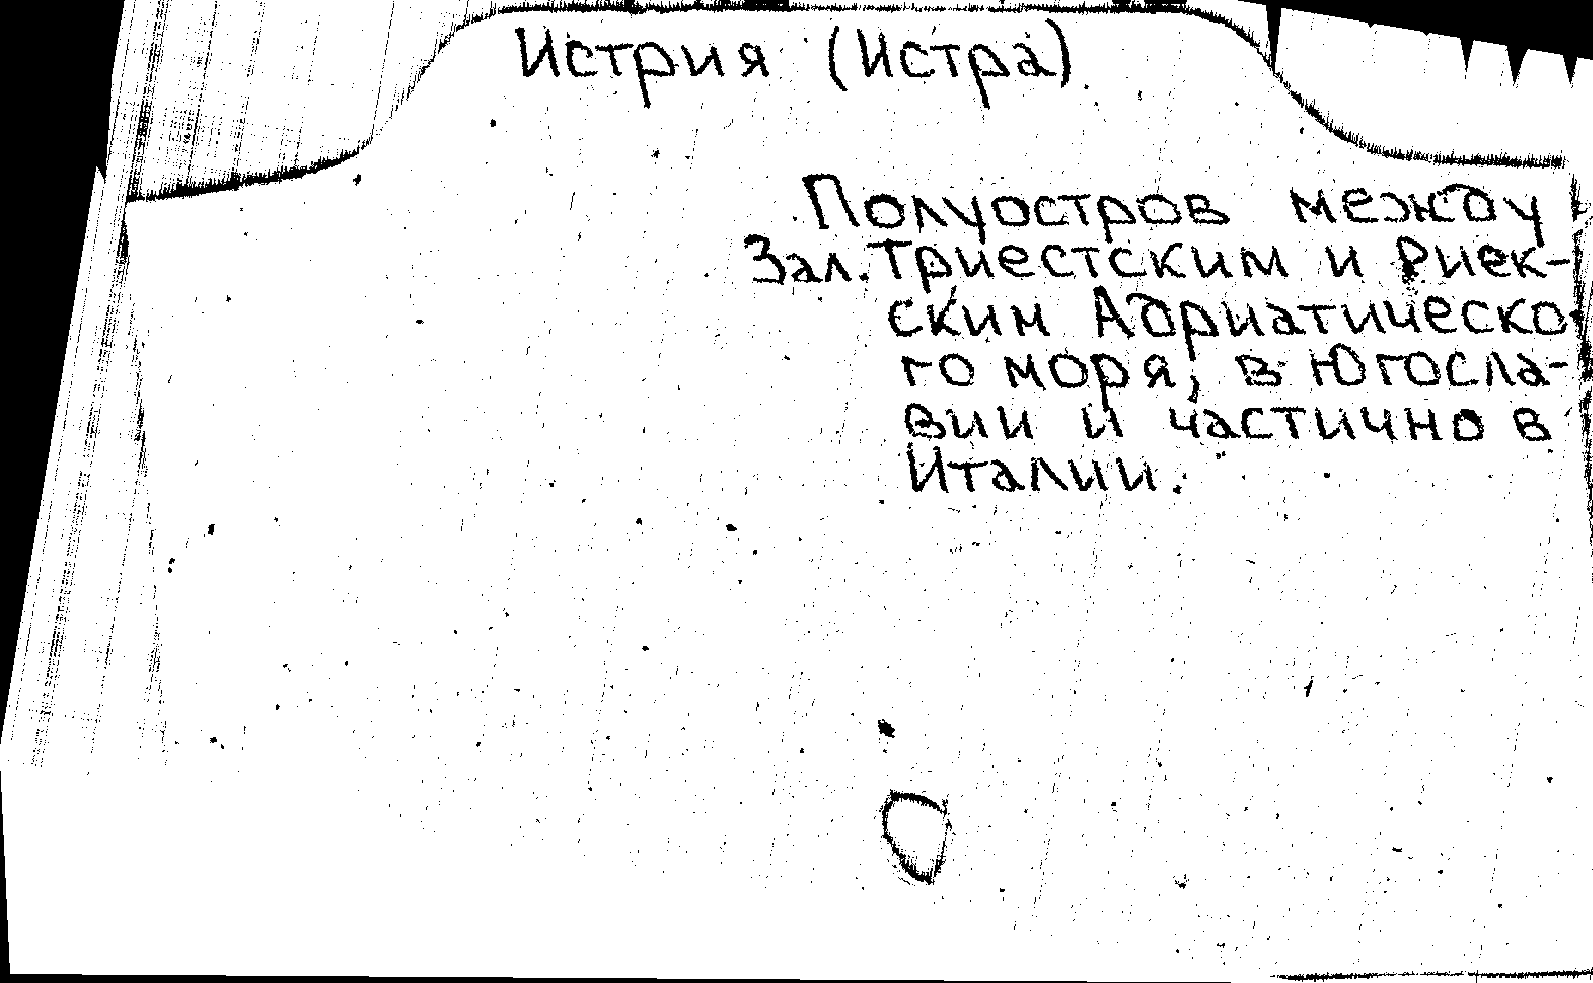 Истрия (Истра)
Полуостров между
Зал. Триестским и Риек-
ским Адриатическо
го моря, в Югосла-
вии и частично в
Италии.